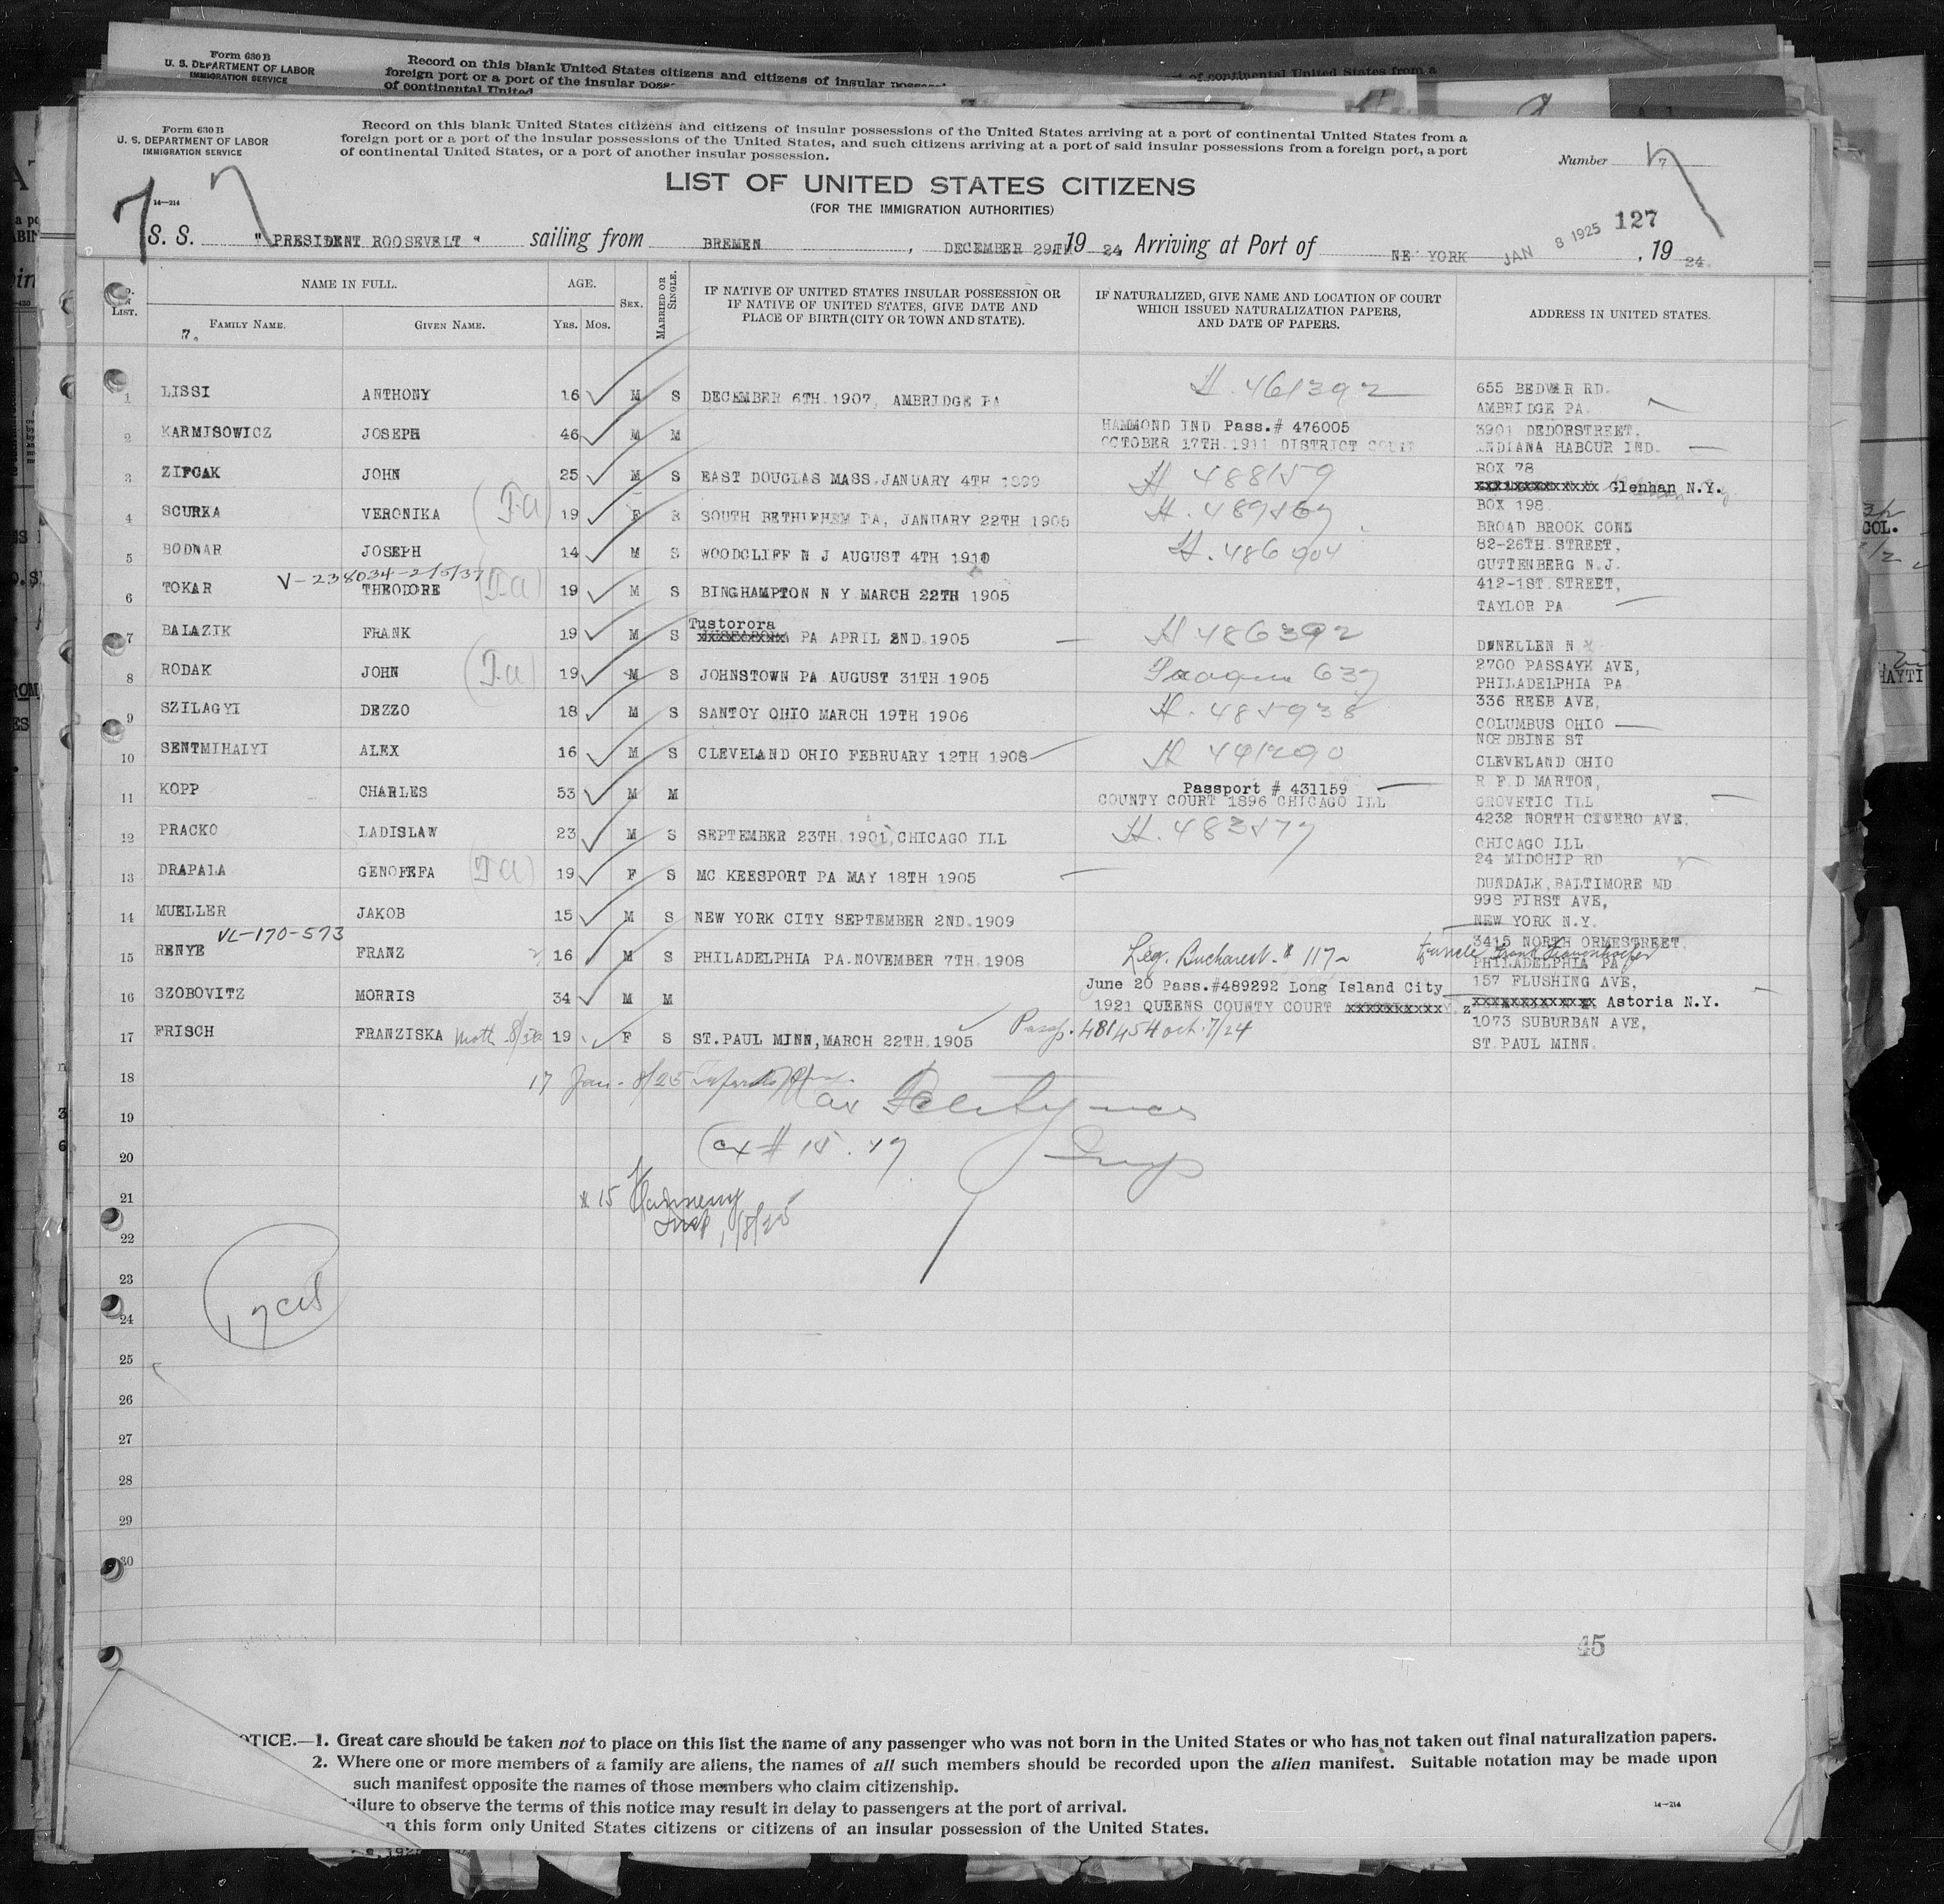 Form 630 B
U. S. DEPARTMENT OF LABOR
IMMIGRATION SERVICE
Record on this blank United States citizens and citizens of insular
foreign port or a port of the insular
of continental United
of continental United States from a
Form 630 B
U. S. DEPARTMENT OF LABOR
IMMIGRATION SERVICE
Record on this blank United States citizens and citizens of insular possessions of the United States arriving at a port of continental United States from a
foreign port or a port of the insular possessions of the United States, and such citizens arriving at a port of said insular possessions from a foreign port, a port
of continental United States, or a port of another insular possession.
Number 7
LIST OF UNITED STATES CITIZENS
(FOR THE IMMIGRATION AUTHORITIES)
14—214
7
127
S. S. "PRESIDENT ROOSEVELT" sailing from BREMEN, DECEMBER 29TH 19 24 Arriving at Port of NE YORK JAN 8 1925, 19 24.
LIST. NAME IN FULL. AGE. SEX. MARRIED OR SINGLE. IF NATIVE OF UNITED STATES INSULAR POSSESSION OR IF NATIVE OF UNITED STATES, GIVE DATE AND PLACE OF BIRTH (CITY OR TOWN AND STATE). IF NATURALIZED, GIVE NAME AND LOCATION OF COURT WHICH ISSUED NATURALIZATION PAPERS, AND DATE OF PAPERS. ADDRESS IN UNITED STATES.
FAMILY NAME. GIVEN NAME. YRS. MOS.
7.
1 LISSI ANTHONY 16 M S DECEMBER 6TH 1907, AMBRIDGE PA H. 461392 655 BEDWAR RD. AMBRIDGE PA.
2 KARMISOWICZ JOSEPH 46 M M HAMMOND IND Pass.# 476005 OCTOBER 17TH 1911 DISTRICT COUR 3901 DEDORSTREET, INDIANA HABOUR IND.
3 ZIPCAK JOHN 25 M S EAST DOUGLAS MASS JANUARY 4TH 1899 H 488159 BOX 78 xxxxxxxxxxxxx Glenhan N.Y.
4 SCURKA VERONIKA 19 F S SOUTH BETHLEHEM PA, JANUARY 22TH 1905 BOX 198 BROAD BROOK CONN
5 BODNAR JOSEPH 14 M S WOODCLIFF N J AUGUST 4TH 1910 H. 486904 82-26TH STREET, GUTTENBERG N.J.
V-238034-2/5/37
6 TOKAR THEODORE 19 M S BINGHAMPTON N Y MARCH 22TH 1905 412-1ST STREET, TAYLOR PA
7 BALAZIK FRANK 19 M S Tustorora PA APRIL 2ND 1905 H 486392 DUNELLEN N
8 RODAK JOHN 19 M S JOHNSTOWN PA AUGUST 31TH 1905 2700 PASSAYK AVE, PHILADELPHIA PA
9 SZILAGYI DEZZO 18 M S SANTOY OHIO MARCH 19TH 1906 H. 485938 336 REEB AVE, COLUMBUS OHIO
10 SENTMIHALYI ALEX 16 M S CLEVELAND OHIO FEBRUARY 12TH 1908 H 491290 DBINE ST CLEVELAND OHIO
11 KOPP CHARLES 53 M M Passport # 431159 COUNTY COURT 1896 CHICAGO ILL R F D MARTON, GROVETIC ILL
12 PRACKO LADISLAW 23 M S SEPTEMBER 23TH 1901, CHICAGO ILL H. 483577 4232 NORTH CICERO AVE, CHICAGO ILL
13 DRAPALA GENOFEFA 19 F S MC KEESPORT PA MAY 18TH 1905 24 MIDCHIP RD DUNDALK, BALTIMORE MD
14 MUELLER JAKOB 15 M S NEW YORK CITY SEPTEMBER 2ND 1909 998 FIRST AVE, NEW YORK N.Y.
VL-170-573
15 RENYE FRANZ 16 M S PHILADELPHIA PA NOVEMBER 7TH 1908 Leg. Bucharest # 117 3415 NORTH ORMESTREET PHILADELPHIA PA
16 SZOBOVITZ MORRIS 34 M M June 20 Pass.#489292 Long Island City 1921 QUEENS COUNTY COURT 157 FLUSHING AVE, xxxxxxxxxxxxx Astoria N.Y.
17 FRISCH FRANZISKA 19 F S ST. PAUL MINN, MARCH 22TH 1905 Passp. 481454 Oct. 7/24 1073 SUBURBAN AVE, ST. PAUL MINN.
18 17 Jan-8/25
19
(ex # 15. 17
20 Insp
21 # 15
Insp 1/8/25
22
23
24
25
26
27
28
29
30
45
OTICE.—1. Great care should be taken not to place on this list the name of any passenger who was not born in the United States or who has not taken out final naturalization papers.
2. Where one or more members of a family are aliens, the names of all such members should be recorded upon the alien manifest. Suitable notation may be made upon
such manifest opposite the names of those members who claim citizenship.
ailure to observe the terms of this notice may result in delay to passengers at the port of arrival.
14—214
n this form only United States citizens or citizens of an insular possession of the United States.